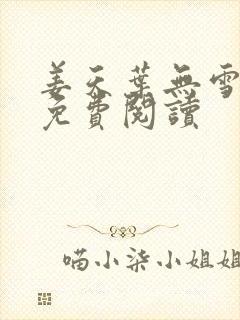 姜天葉無雪
免費閱讀
喵小柒小姐姐